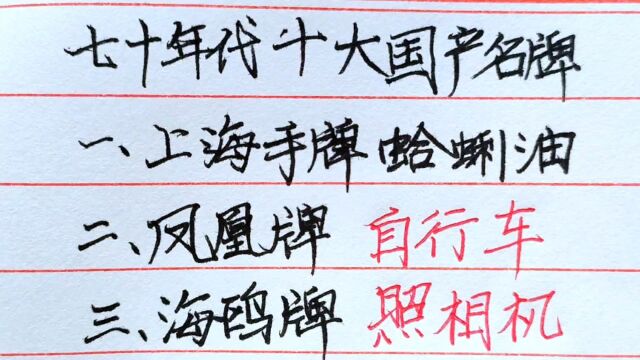 七十年代十大国产名牌
一、上海手牌蛤蜊油
二、凤凰牌 自行车
三、海鸥牌 照相机